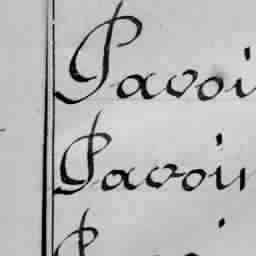 Pavoi
Pavoir